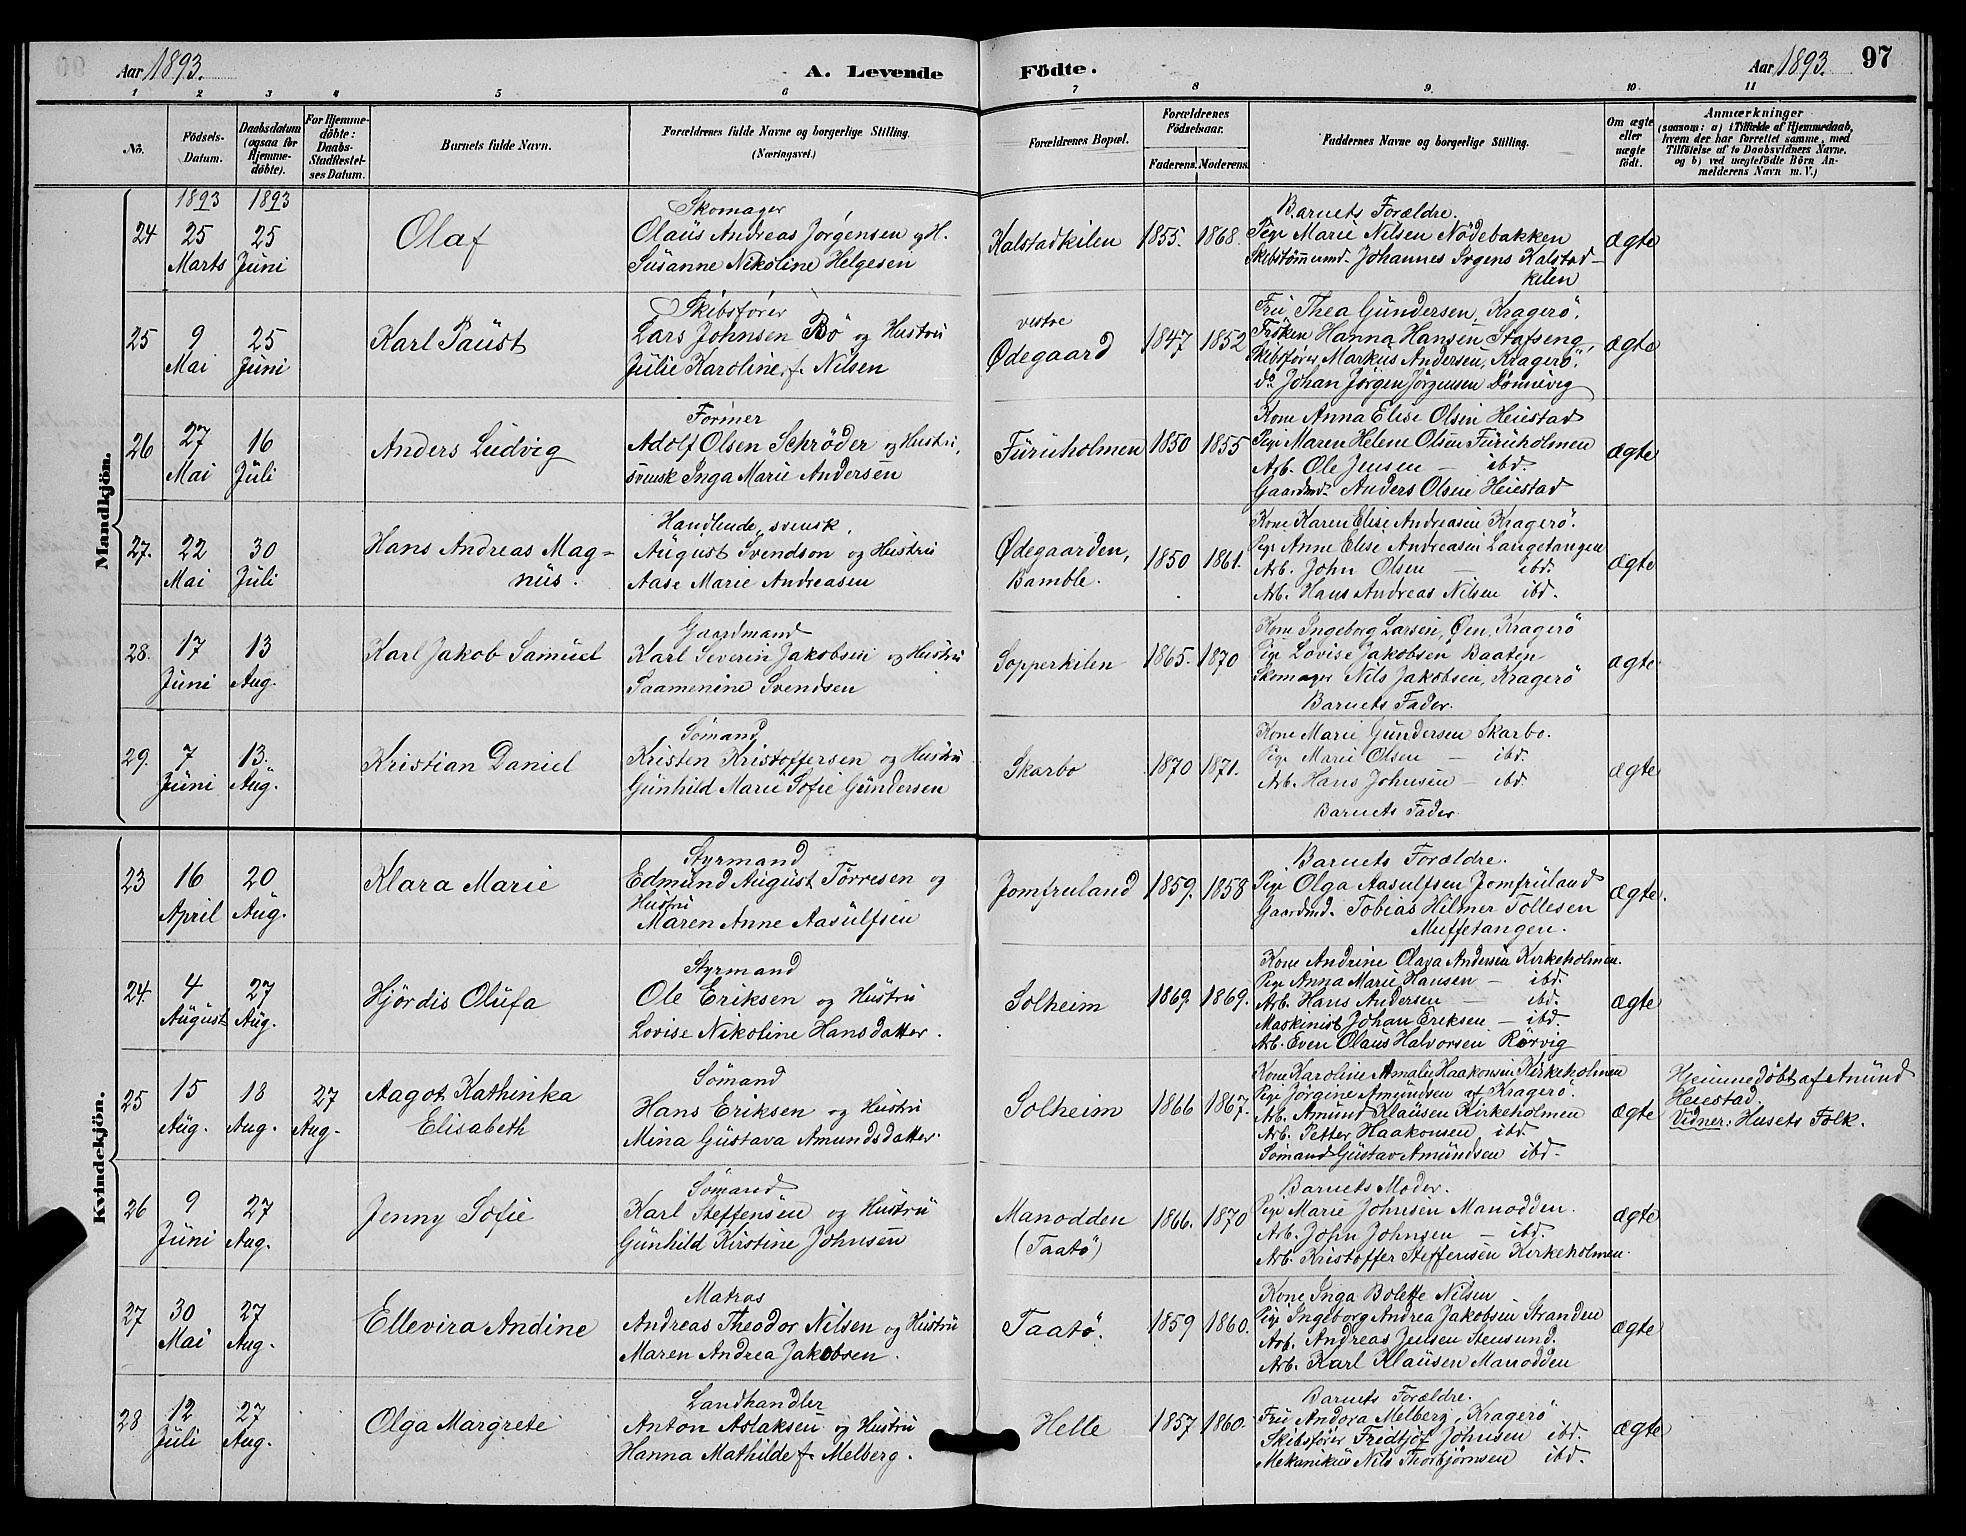 Aar 1893. A. Levende Födte. Aar 1893. 97
1 2 3 4 5 6 7 8 9. 10. 11
No. Födsels-Datum. Daabsdatum (ogsaa for Hjemme-döbte). For Hjemme-döbte: Daabs-Stadfæstel-ses Datum. Barnets fulde Navn. Forældrenes fulde Navne og borgerlige Stilling. (Næringsvei.) Forældrenes Bopæl. Forældrenes Födselsaar. Faderens. Moderens. Faddernes Navne og borgerlige Stilling. Om ægte eller uægte födt. Anmærkninger
(saasom: a) i Tilfælde af Hjemmedaab, hvem der har forrettet samme, med Tilföielse af to Daabsvidners Navne, og b) ved uægtefödte Börn An-melderens Navn m. V.)
Mandkjön.
1893 1893
24 25 Marts 25 Juni Olaf
Skomager
Olaüs Andreas Jørgensen og H.
Susanne Nikoline Helgesen
Kalstadkilen 1855. 1868.
Barnets Forældre.
Pige Marie Nilsen Nödebakken
Skibstømmermd. Johannes Jrgens Kalstad-
kilen
ægte
25 9 Mai 25 Juni Karl Paüst
Skibsfører
Lars Johnsen Bö og Hustru
Julie Karoline f. Nilsen
vestre
Ødegaard 1847 1852
Fru Thea Gundersen, Kragerö.
Frøken Hanna Hansen Stafseng,
Skibsfører Markus Andersen, Kragerö.
do. Johan Jørgen Jörgensen Dönnevig
ægte
26 27 Mai 16 Juli Anders Ludvig
Former
Adolf Olsen Schrøder og Hustru,
svensk Inga Marie Andersen
Furuholmen 1850 1855
Kone Anna Elise Olsen Heiestad
Pige Maren Helene Olsen Furuholmen
Arb. Ole Jensen — ibd.
Gaardmd. Anders Olsen Heiestad
ægte
27. 22 Mai 30 Juli Hans Andreas Mag-
nus.
Handlende, svensk.
August Svendson og Hustru
Aase Marie Andreasen
Ødegaarden,
Bamble. 1850 1861.
Kone Karen Elise Andreasen Kragerö.
Pige Anne Elise Andreasen Langetangen
Arb. John Olsen — ibd.
Arb. Hans Andreas Nilsen ibd.
ægte
28. 17 Juni 13 Aug. Karl Jakob Samuel
Gaardmand
Karl Severin Jakobsen og Hustru
Saamenine Svendsen
Sopperkilen 1865. 1870
Kone Ingeborg Larsen, Øen, Kragerö
Pige Lovise Jakobsen Baaten
Skomager Nils Jakobsen, Kragerö
Barnets Fader.
ægte
29. 7 Juni 13. Aug. Kristian Daniel
Sømand
Kristen Kristoffersen og Hustru
Gunhild Marie Sofie Gundersen
Skarbo 1870 1871.
Kone Marie Gundersen Skarbo.
Pige Marie Olsen — ibd.
Arb. Hans Johnsen — ibd.
Barnets Fader.
ægte
Kvindekjön.
23 16 April 20 Aug. Klara Marie
Styrmand
Edmund August Törresen og
Hustru
Maren Anne Aasulfsen
Jomfruland 1859. 1858
Barnets Forældre.
Pige Olga Aasulfsen Jomfruland
Gaardmd. Tobias Hilmer Tollesen
Muffetangen.
ægte.
24. 4 August 27 Aug. Hjördis Olufa
Styrmand
Ole Eriksen og Hustru
Lovise Nikoline Hansdatter.
Solheim 1869. 1869.
Kone Andrine Olava Andersen Kirkeholmen.
Pige Anna Marie Hansen — ibd.
Arb. Hans Andersen — ibd.
Maskinist Johan Eriksen — ibd.
Arb. Even Olaus Halvorsen Rørvig
ægte
25 15 Aug. 18 Aug. 27 Aug. Aagot Kathinka
Elisabeth
Sömand
Hans Eriksen og Hustru
Mina Gustava Amundsdatter.
Solheim 1866 1867.
Kone Karoline Amalie Haakonsen Kirkeholmen
Pige Jörgine Amundsen af Kragerö.
Arb. Amund Klausen Kirkeholmen
Arb. Petter Haakonsen ibd.
Sømand Gustav Amundsen ibd.
ægte
Hjemmedøbt af Amund
Heiestad.
Vidner: Husets Folk.
26 9 Juni 27 Aug. Jenny Sofie
Sömand
Karl Steffensen og Hustru
Gunhild Kirstine Johnsen
Manodden
(Taatö) 1866. 1870
Barnets Moder.
Pige Marie Johnsen Manodden.
Arb. John Johnsen — ibd.
Arb. Kristoffer Steffensen Kirkeholmen.
ægte
27 30 Mai 27 Aug. Ellevira Andine
Matros
Andreas Theodor Nilsen og Hustru
Maren Andrea Jakobsen.
Taatö. 1859 1860.
Kone Inga Bolette Nilsen
Pige Ingeborg Andrea Jakobsen Stranden
Arb. Andreas Jensen Stensund.
Arb. Karl Klausen Manodden
ægte
28 12 Juli 27 Aug. Olga Margrete
Landhandler
Anton Aslaksen og Hustru
Hanna Mathilde f. Melberg.
Helle 1857 1860.
Barnets Forældre.
Fru Andora Melberg, Kragerö
Skibsfører Fredtjof Johnsen ibd.
Mekanikus Nils Thorbjørnsen ibd.
ægte